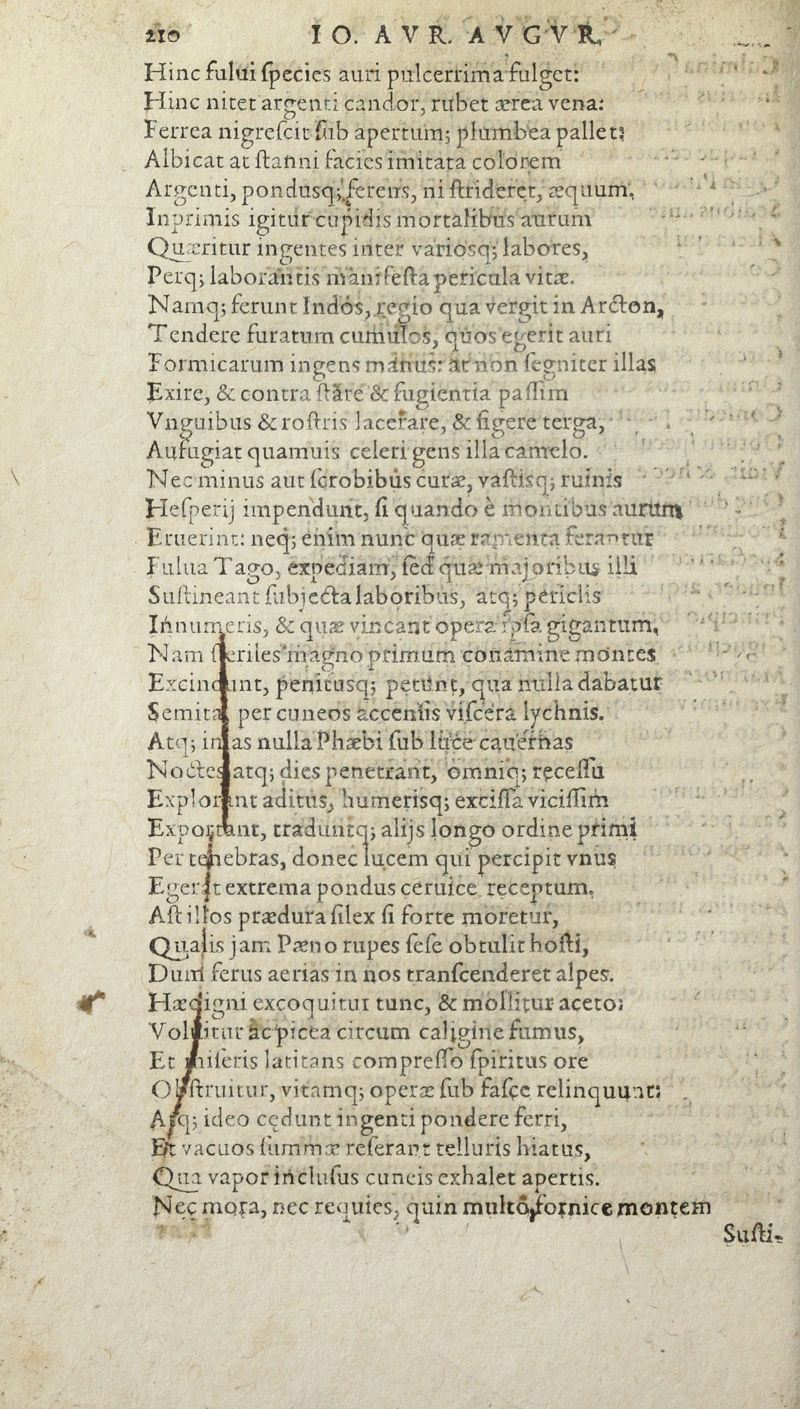 210 IO. AVR. AVGVR.
Hinc fului ſpecies auri pulcerrima fulget:
Hinc nitet argenti candor, rubet ærea vena:
Ferrea nigreſcit ſub apertum; plumbea pallet;
Albicat at ſtanni facies imitata colorem
Argenti, pondusq; ferens, ni ſtrideret, æquum.
Inprimis igitur cupidis mortalibus aurum
Quæritur ingentes inter variosq; labores,
Perq; laborantis manifeſta pericula vitæ.
Namq; ferunt Indos, regio qua vergit in Arcton,
Tendere furatum cumulos, quos egerit auri
Formicarum ingens manus: at non ſegniter illas
Exire, & contra ſtare & fugientia paſſim
Vnguibus & roſtris lacerare, & figere terga,
Aufugiat quamuis celeri gens illa camelo.
Nec minus aut ſcrobibus curæ, vaſtisq; ruinis
Heſperij impendunt, ſi quando è montibus aurum
Eruerint: neq; enim nunc quæ ramenta ferantur
Fulua Tago, expediam, ſed quæ majoribus illi
Suſtineant ſubjecta laboribus, atq; periclis
Innumeris, & quæ vincant opera ipſa gigantum.
Nam ſteriles magno primum conamine montes
Excindunt, penitusq; petunt, qua nulla dabatur
Semita, per cuneos accenſis viſcera lychnis.
Atq; imas nulla Phæbi ſub luce cauernas
Noctes atq; dies penetrant, omniq; receſſu
Explorant aditus, humerisq; exciſſa viciſſim
Exportant, traduntq; alijs longo ordine primi
Per tenebras, donec lucem qui percipit vnus
Egerit extrema pondus ceruice receptum.
Aſt illos prædura ſilex ſi forte moretur,
Qualis jam Pæno rupes ſeſe obtulit hoſti,
Dum ferus aerias in nos tranſcenderet alpes.
Hæc igni excoquitur tunc, & mollitur aceto:
Voluitur ac picea circum caligine fumus,
Et miſeris latitans compreſſo ſpiritus ore
Obſtruitur, vitamq; operæ ſub faſce relinquunt:
Atq; ideo cędunt ingenti pondere ferri,
Et vacuos ſummæ referant telluris hiatus,
Qua vapor incluſus cuneis exhalet apertis.
Nec mora, nec requies, quin multo fornice montem
Suſti-